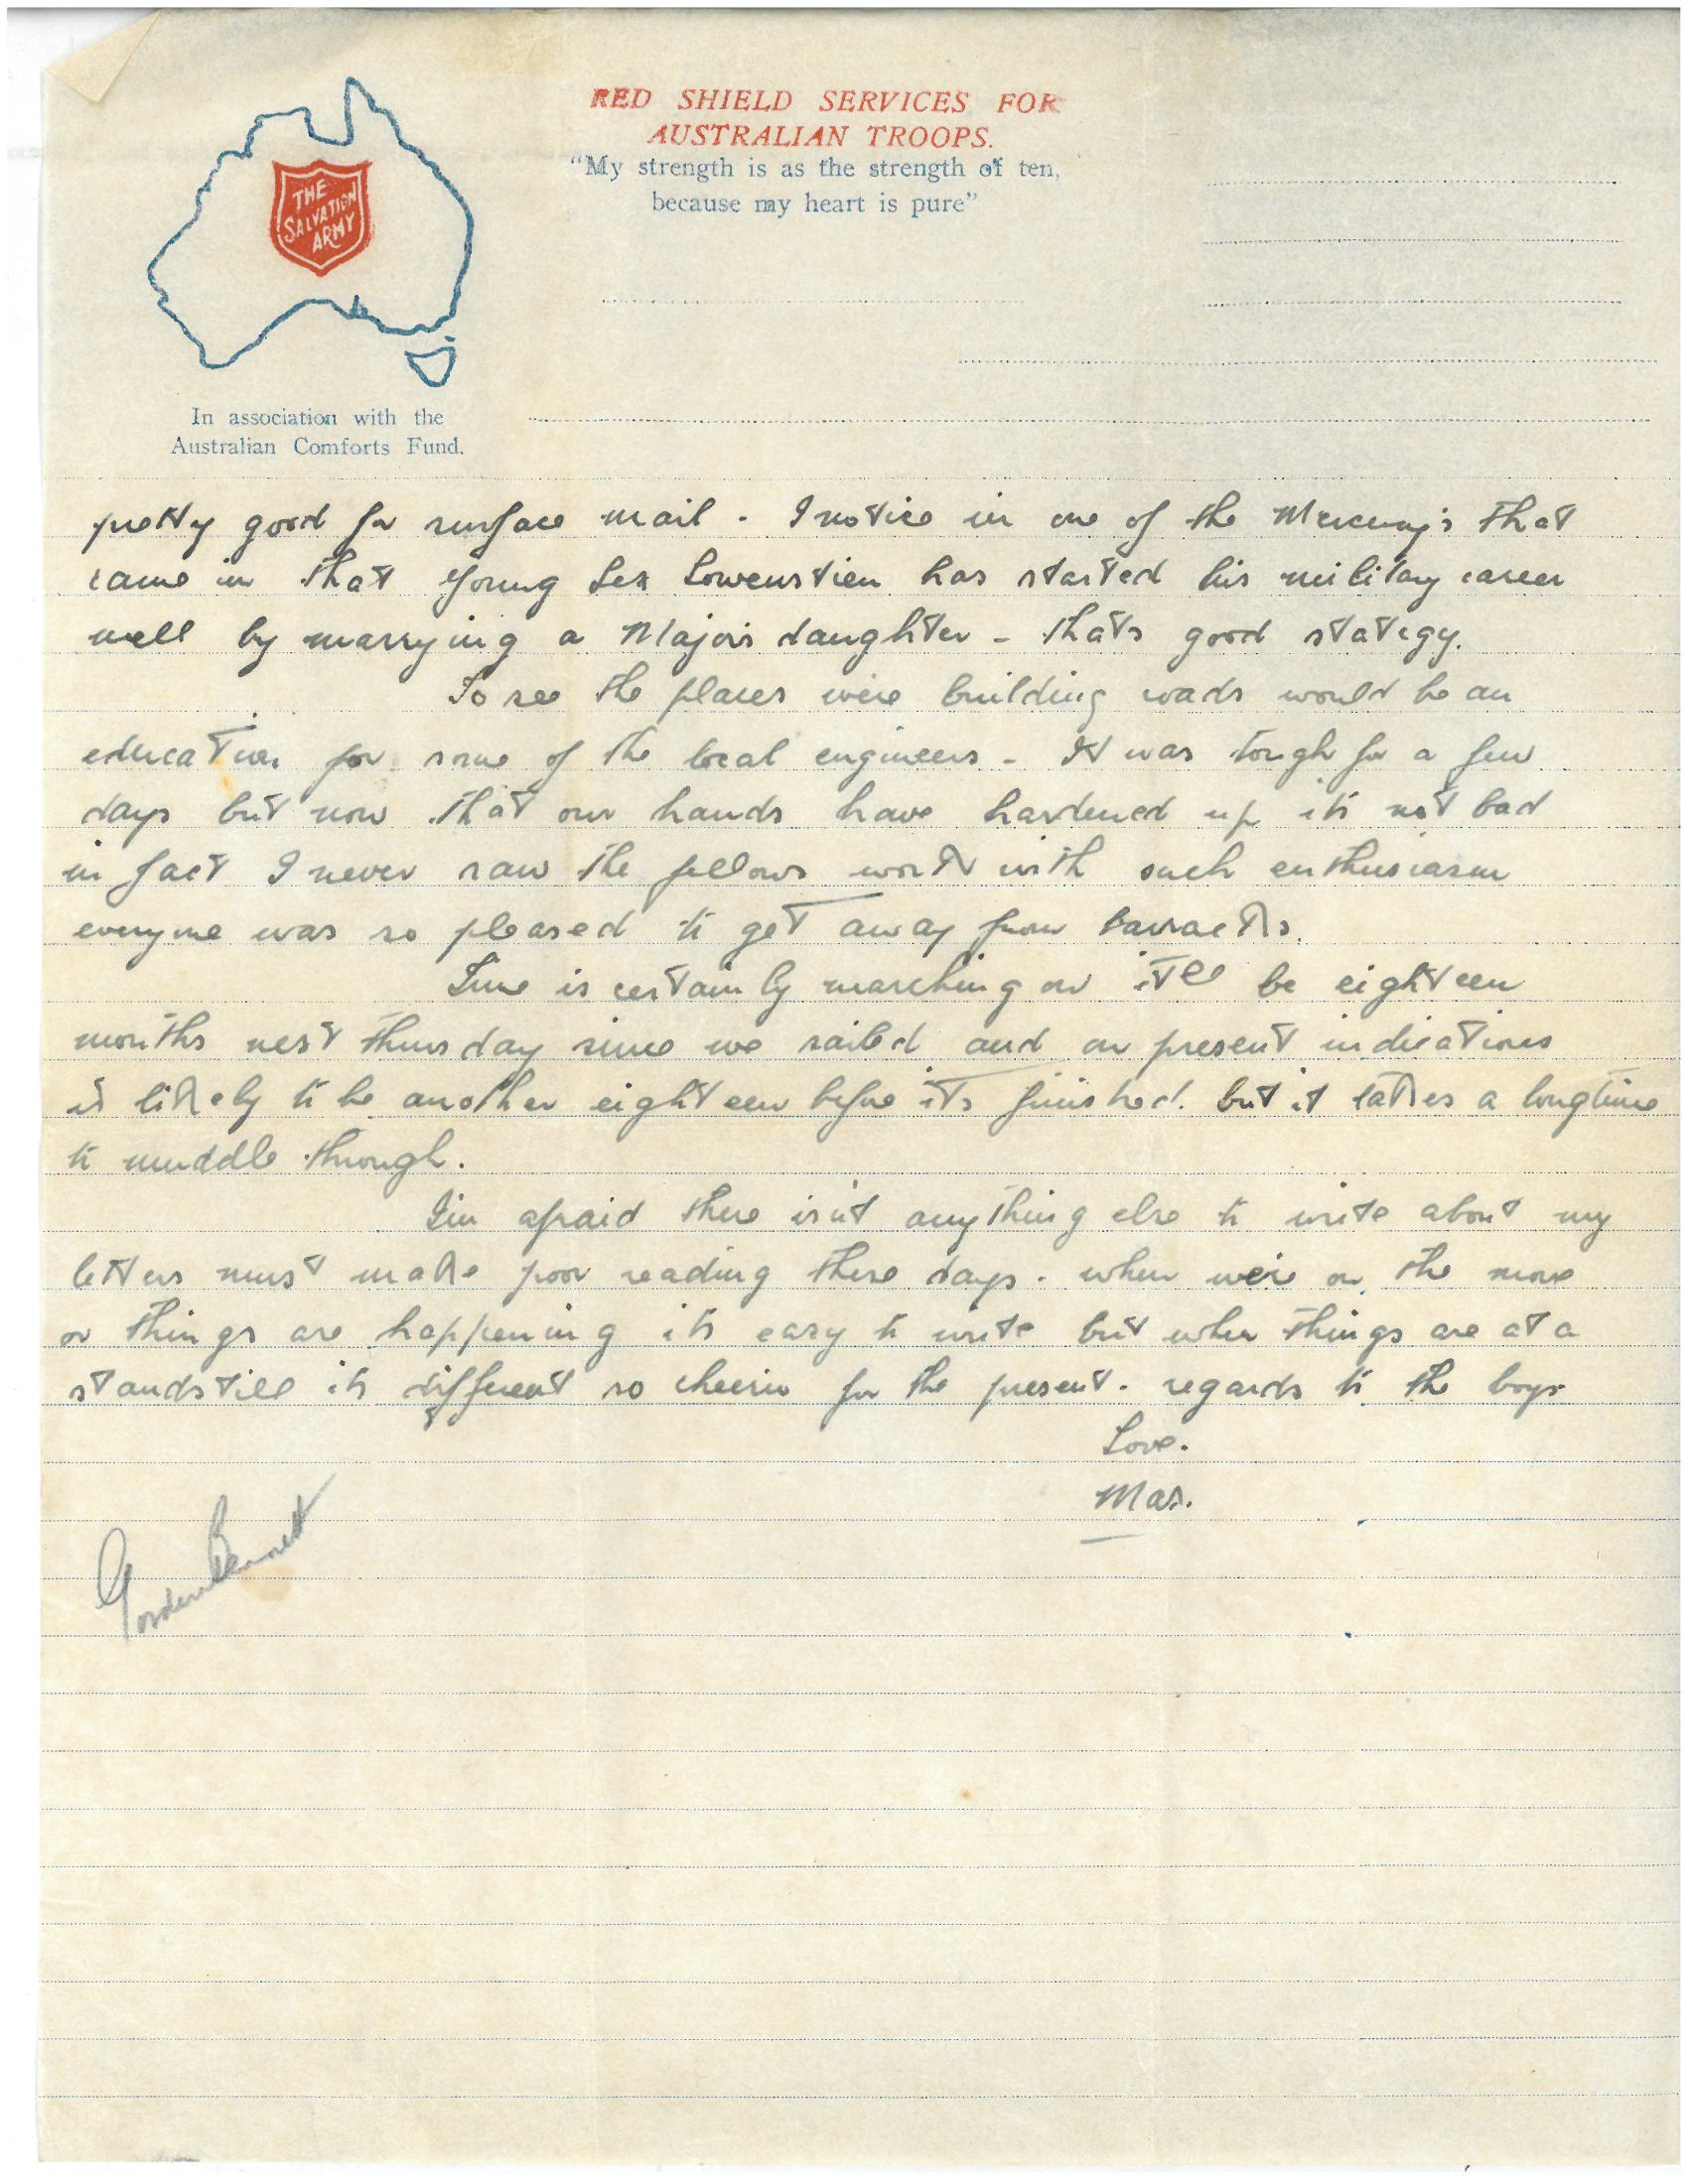 RED SHIELD SERVICES FOR
AUSTRALIAN TROOPS.
"My strength is as the strength of ten,
because my heart is pure"
THE
SALVATION
ARMY
In association with the
Australian Comforts Fund.
pretty good for surface mail. I notice in one of the Mercury's that
came in that young Lex Lowenstien has started his military career
well by marrying a Major's daughter - thats good stategy.
To see the places we're building roads would be an
education for some of the local engineers - It was tough for a few
days but now that our hands have hardened up its not bad
in fact I never saw the fellows work with such enthusiasm
everyone was so pleased to get away from barracks.
Time is certainly marching on it'll be eighteen
months next thursday since we sailed and on present indications
is likely to be another eighteen before its finished. but it takes a longtime
to muddle through.
I'm afraid there isn't anything else to write about my
letters must make poor reading these days. when we're on the move
or things are happening its easy to write but when things are at a
standstill its different so cheerio for the present. regards to the boys
Love.
Mas.
Gordon Bennett